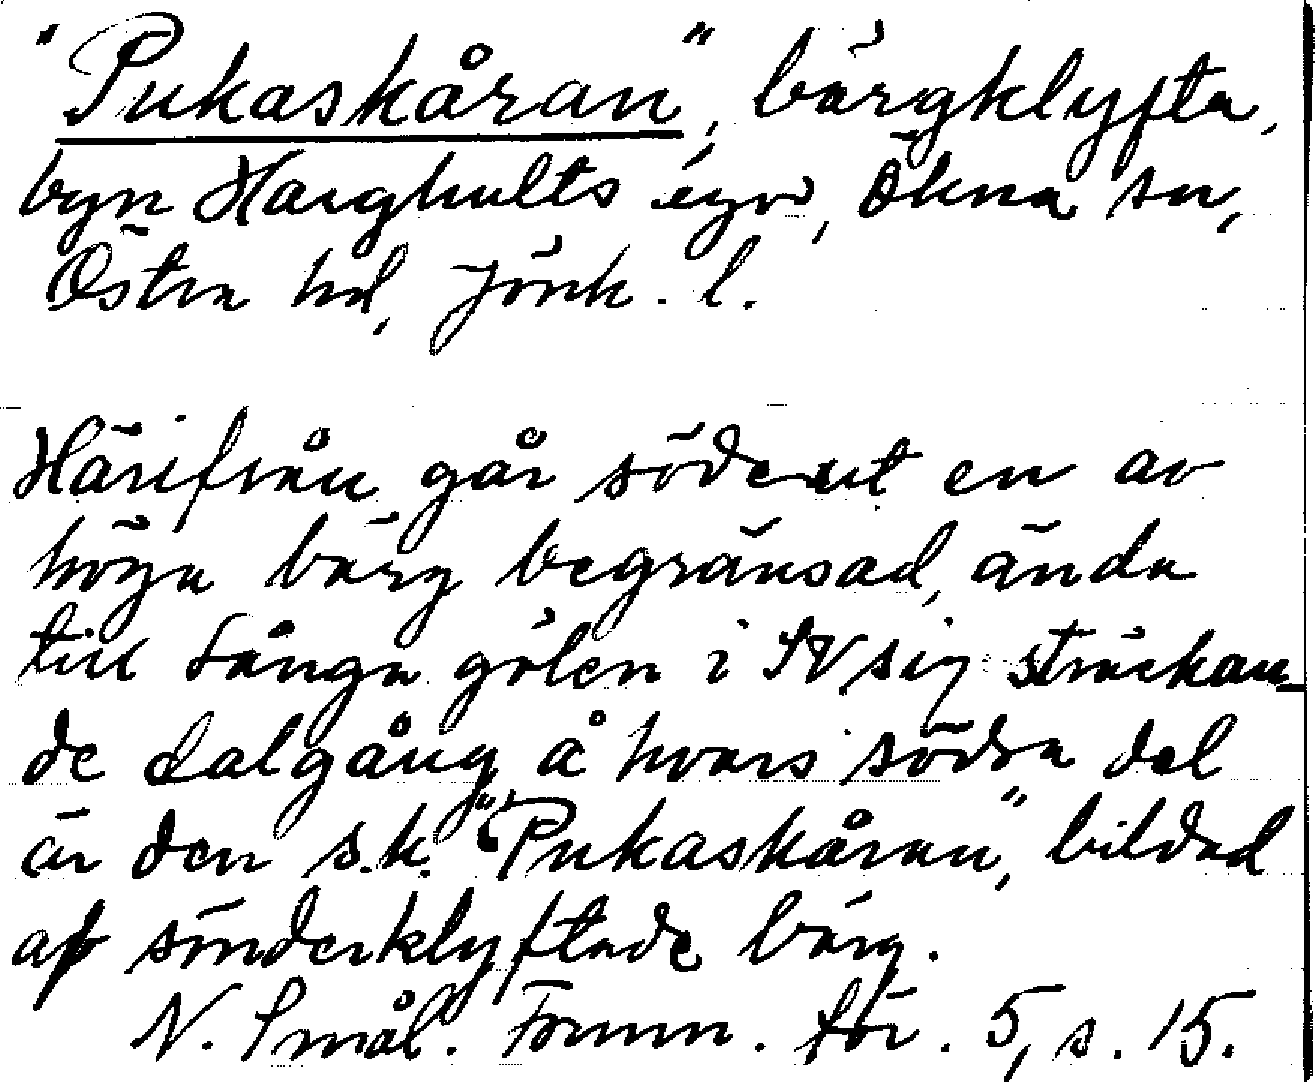 "Pukaskåran", bärgklyfta,
byn Harghults egor, Ökna sn,
Östra hd, Jönk. l.
Härifrån går söderut en av
höga bärg begränsad, ända
till Långa gölen i SV sig sträckan-
de dalgång å hvars södra del
är den s.k. "Pukaskåran", bildad
af sönderklyftade bärg.
N. Smål. Fornm. för. 5, s. 15.